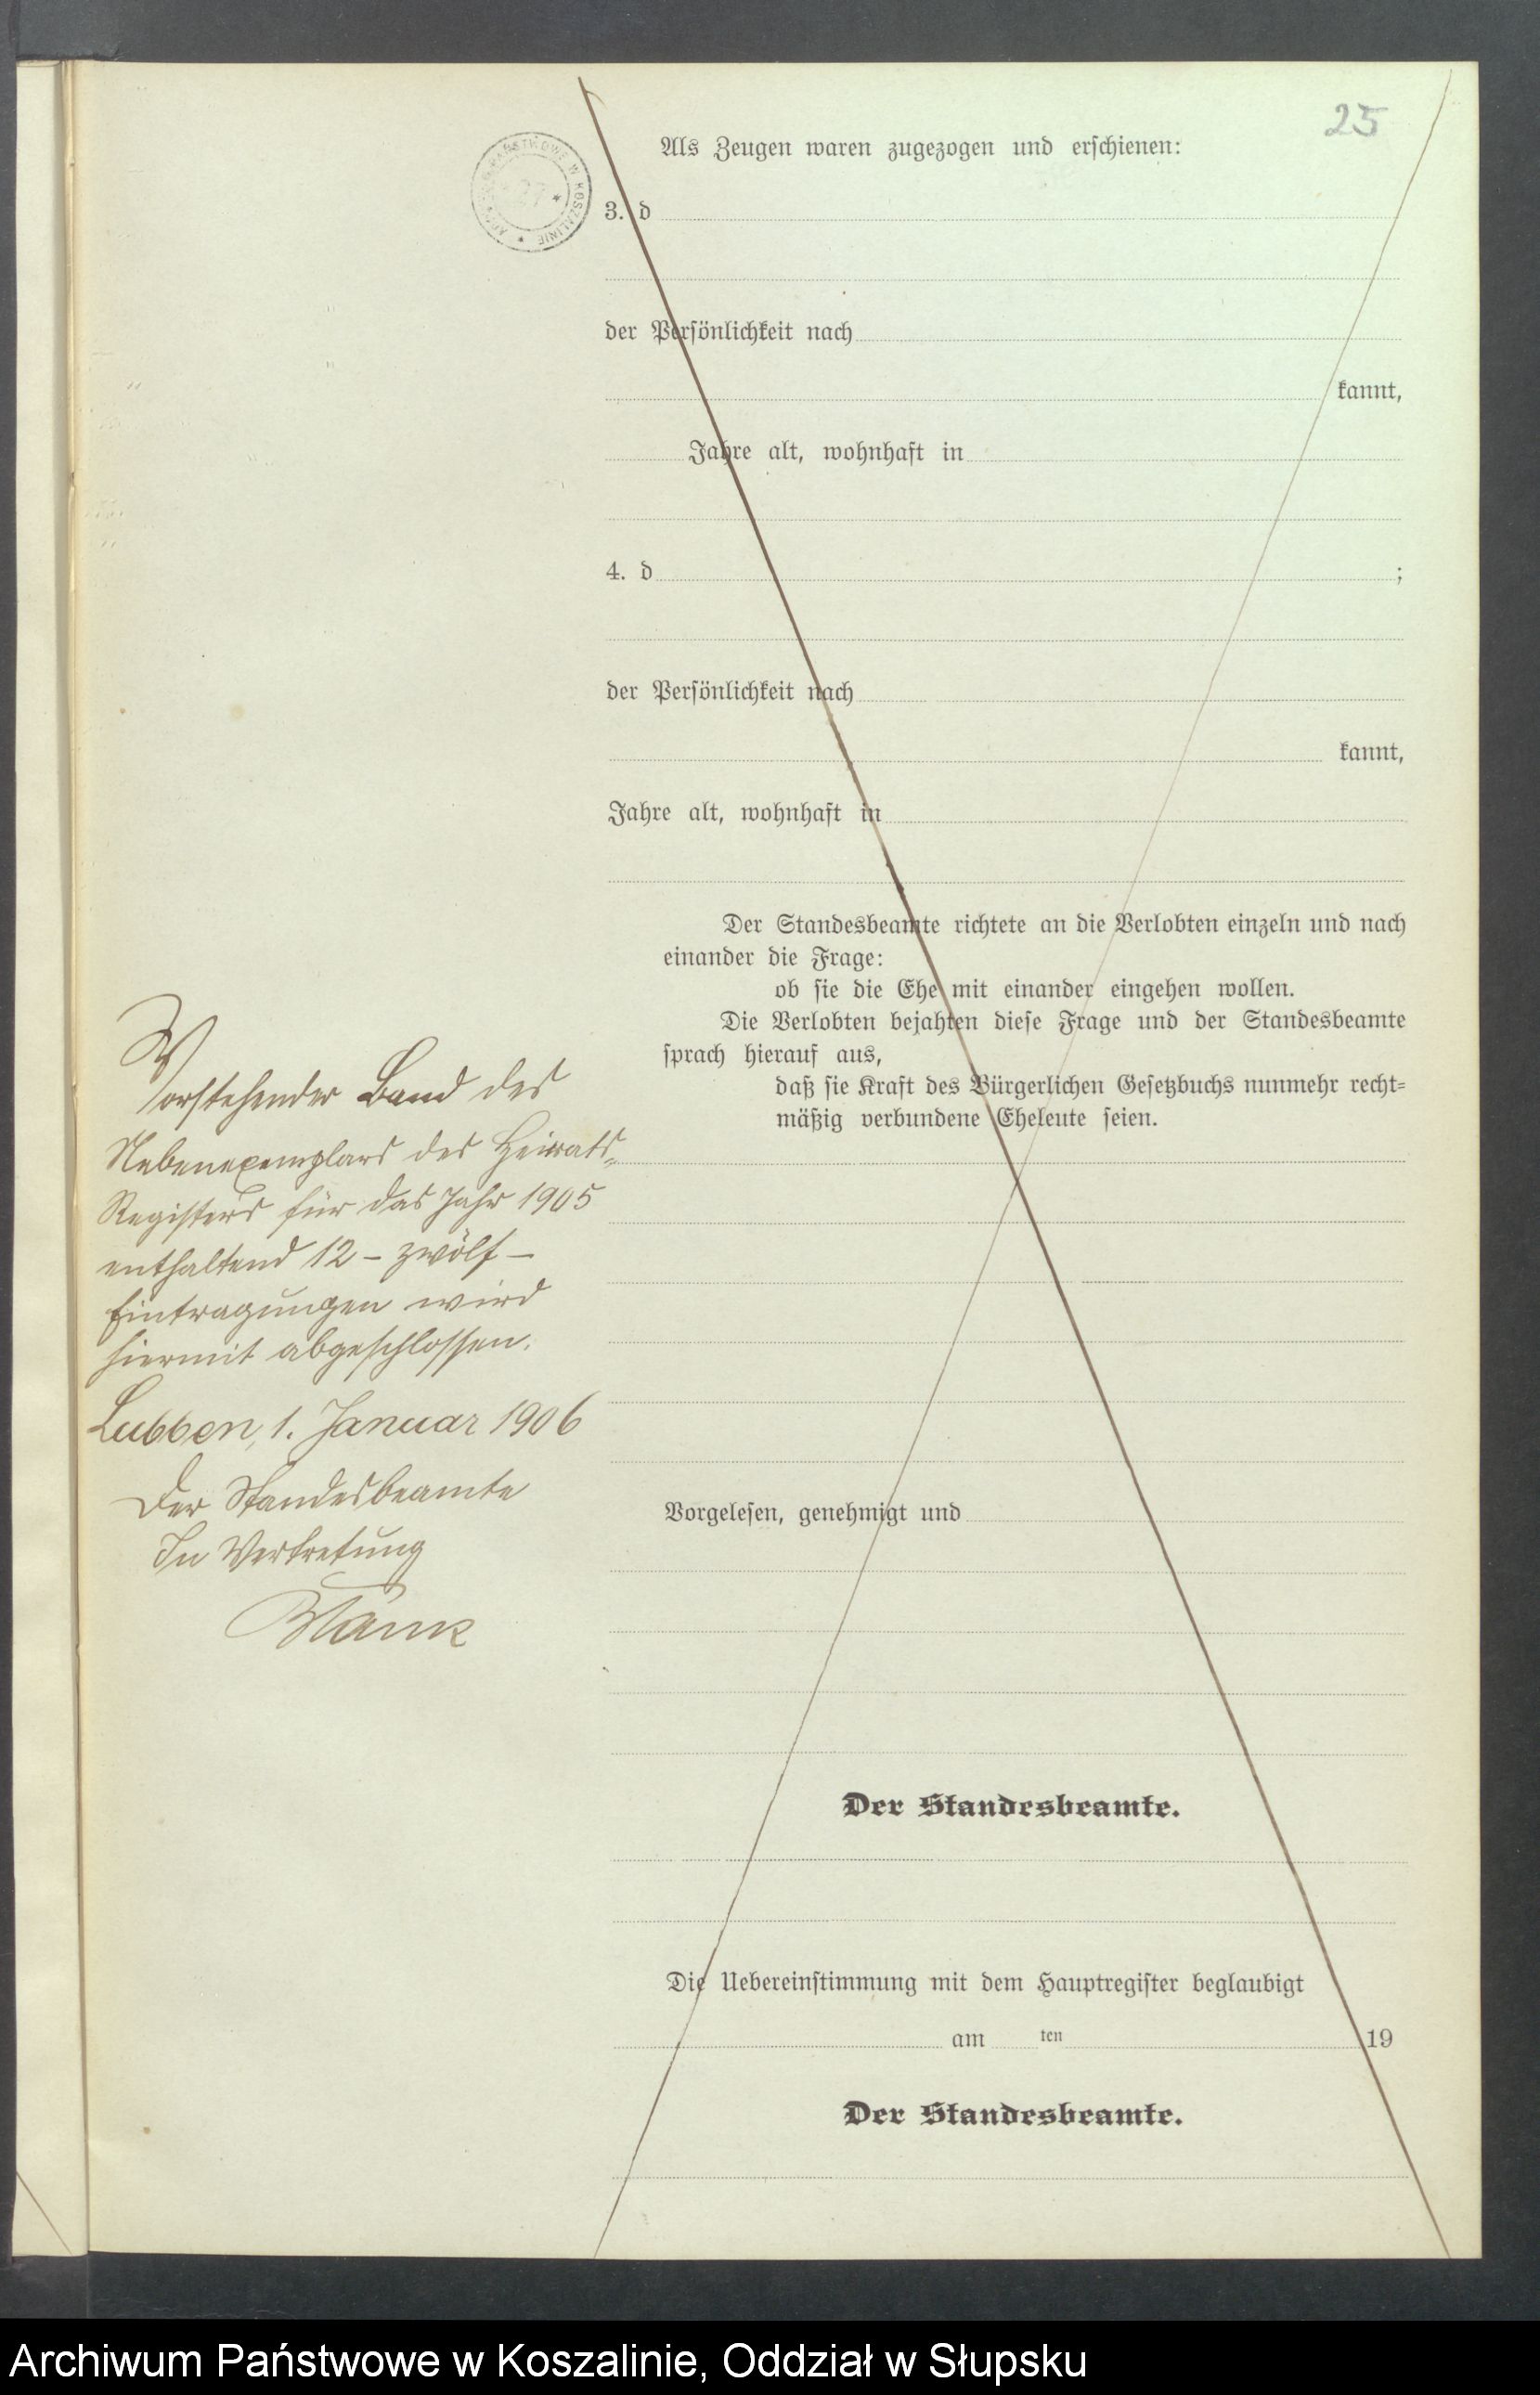 25
ARCHIWUM PAŃSTWOWE W KOSZALINIE
Als Zeugen waren zugezogen und erschienen:
3. d
der Persönlichkeit nach
kannt,
Jahre alt, wohnhaft in
4. d ;
der Persönlichkeit nach
kannt,
Jahre alt, wohnhaft in
Der Standesbeamte richtete an die Verlobten einzeln und nach
einander die Frage:
ob sie die Ehe mit einander eingehen wollen.
Die Verlobten bejahten diese Frage und der Standesbeamte
sprach hierauf aus,
daß sie Kraft des Bürgerlichen Gesetzbuchs nunmehr recht=
mäßig verbundene Eheleute seien.
Vorstehender Band des
Nebenexemplars des Heirats=
Registers für das Jahr 1905
enthaltend 12 – zwölf –
Eintragungen wird
hiermit abgeschlossen.
Lubben, 1. Januar 1906
Der Standesbeamte
In Vertretung
Vorgelesen, genehmigt und
Der Standesbeamte.
Die Uebereinstimmung mit dem Hauptregister beglaubigt
am ten 19
Der Standesbeamte.
Archiwum Państwowe w Koszalinie, Oddział w Słupsku